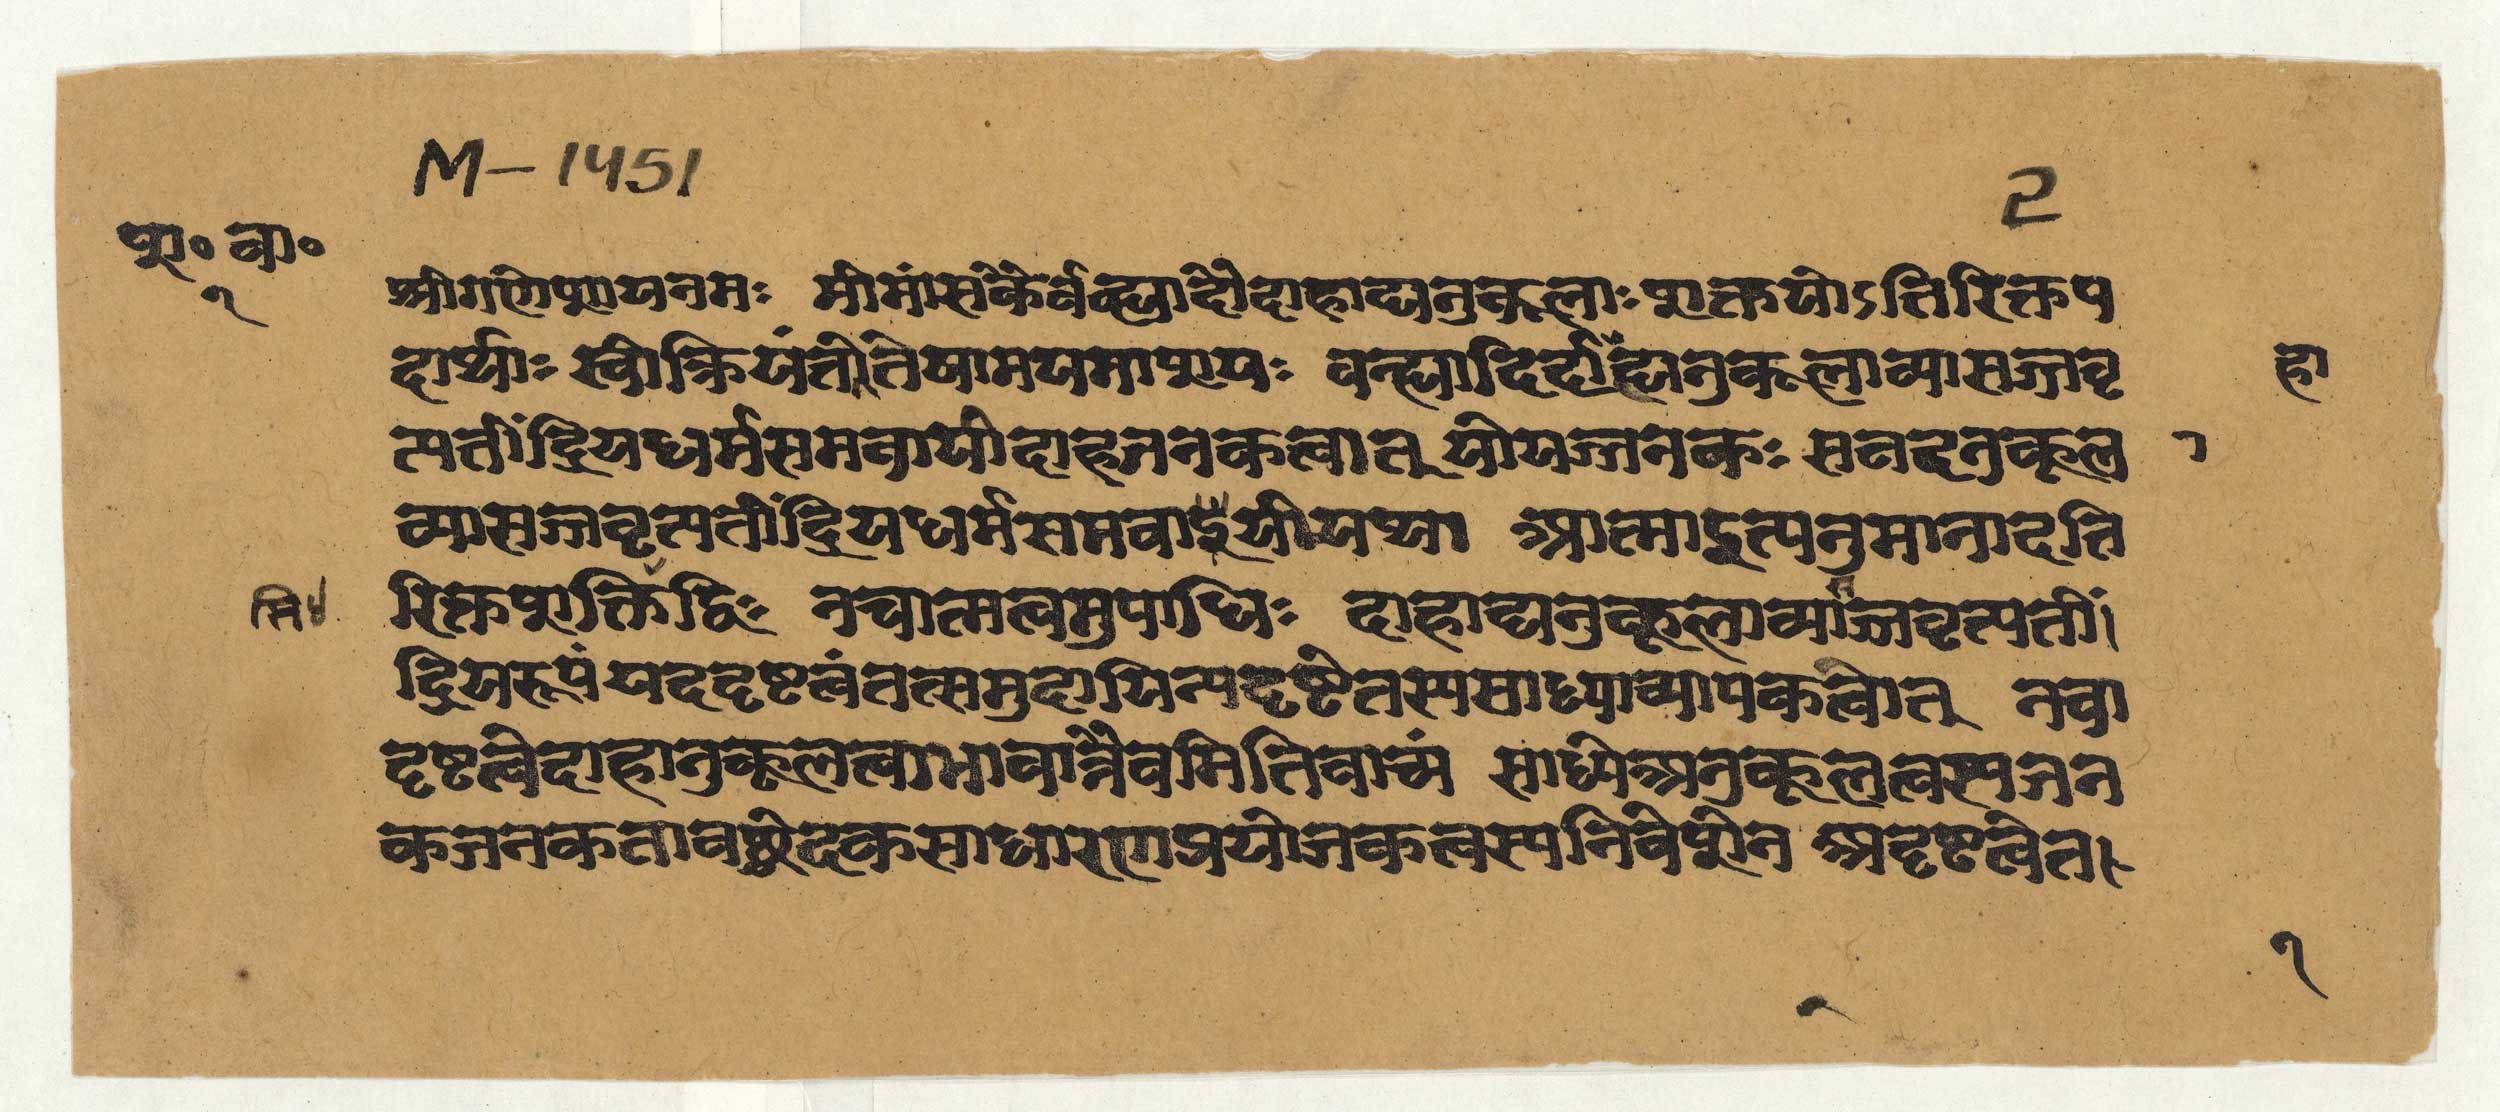 M-1451
2
श॰ वा॰
१
श्रीगणेशायनमः मीमांसकैर्वन्ह्यादौदाहाद्यनुकूलाः शक्तयोऽतिरिक्तप
दार्थाः स्वीक्रियंतेतेषामयमाशयः वन्ह्यादिर्दाह्यनुकूलाव्यासज्जवृ
हा
त्यतींद्रियधर्मसमवायीदाहजनकत्वात् योयज्जनकः सतदनुकूल
ा
व्यासज्जवृत्यतींद्रियधर्मसमवायीयथा आत्माइत्यनुमानादति
रिक्तशक्तिद्धिः नचात्मत्वमुपाधिः दाहाद्यनुकूलाव्याज्जवृत्यतीं
द्रियरूपंयददृष्टत्वंतत्समुदायिन्यदृष्टेतस्यसाध्याव्यापकत्वात् नचा
दृष्टत्वेदाहानुकूलत्वाभावान्नैवमितिवाच्यं साध्येअनुकूलत्वस्यजन
कजनकतावच्छेदकसाधारणप्रयोजकत्वस्यनिवेशेन अदृष्टत्वेत
१